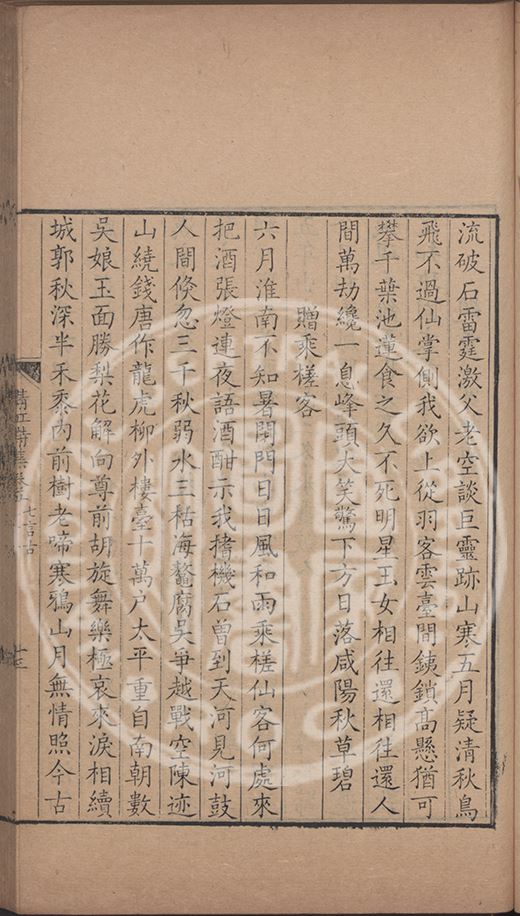 流破石雷霆激父老空談巨靈跡山寒五月疑清秋鳥
飛不過仙掌側我欲上從羽客雲臺間鐵鎖高懸猶可
攀千葉池蓮食之久不死明星玉女相往還相往還人
間萬劫纔一息峰頭大笑驚下方日落咸陽秋草碧
贈乘槎客
六月淮南不知暑閉門日日風和雨乘槎仙客何處來
把酒張燈連夜語酒酣示我揩機石曾到天河見河鼓
人間倏忽三千秋弱水三枯海鼇腐吳爭越戰空陳迹
山繞錢唐作龍虎柳外樓臺十萬户太平重自南朝數
吳娘玉面勝梨花解向尊前胡旋舞樂極哀來淚相續
城郭秋深半禾黍內前樹老啼寒鴉山月無情照今古
七言古